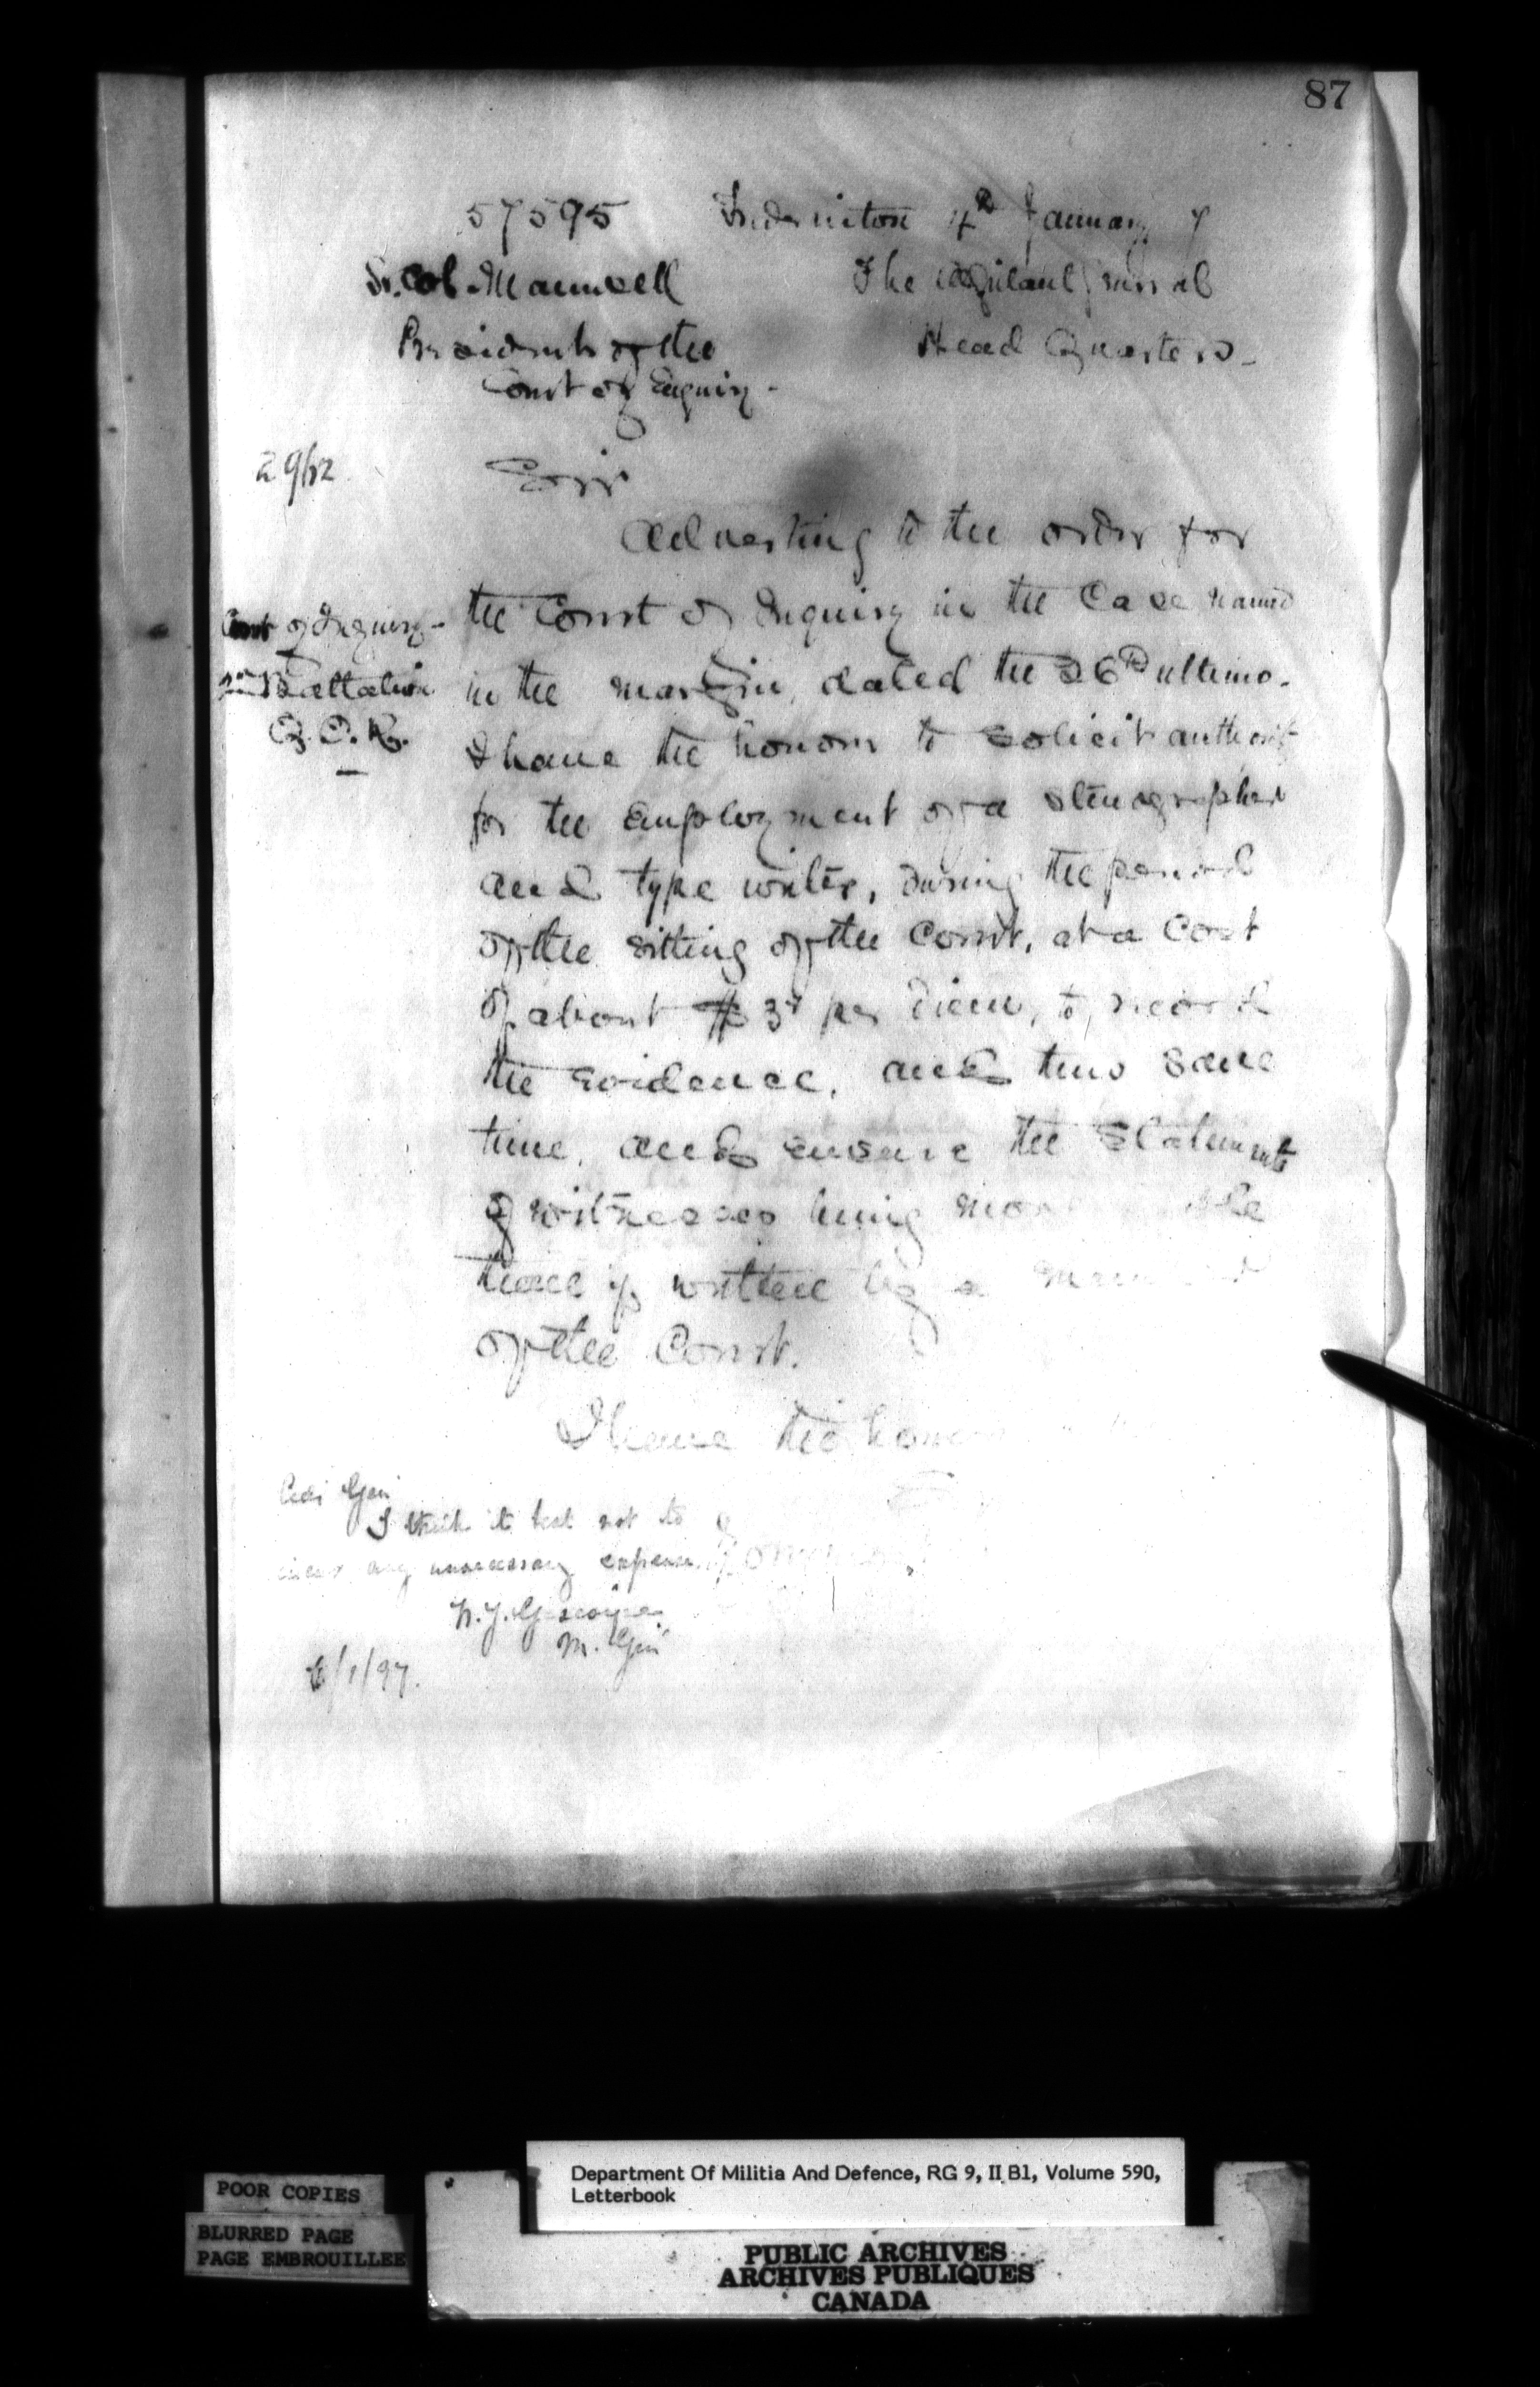 87
57595 Fredericton 4th January 7
Lt. Col Maunsell The Adjutant General
President of the Head Quarters -
Court of Enquiry -
29/12
Sir
Adverting to the order for
the Court of Inquiry in the Case named
Court of Inquiry -
in the margin, dated the 26th ultimo.
Battalion
Q. O. R.
I have the honour to solicit authority
for the Employment of a stenographer
and type writer, during the period
of the sitting of the Court, at a Cost
of about $3 per diem, to record
the evidence, and thus save
time, and ensure the Statements
of witnesses being the
those if written by a
of the Court.
I have the honour
I think it best not to
incur any unnecessary expense.
M. Gen
6/1/97.
Department Of Militia And Defence, RG 9, II B1, Volume 590,
Letterbook
POOR COPIES
BLURRED PAGE
PAGE EMBROUILLEE
PUBLIC ARCHIVES
ARCHIVES PUBLIQUES
CANADA